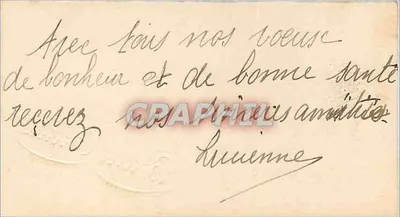 Avec tous nos voeux
de bonheur et de bonne santé
recevez nos sincères amitiés
Lucienne
CPAPHIL